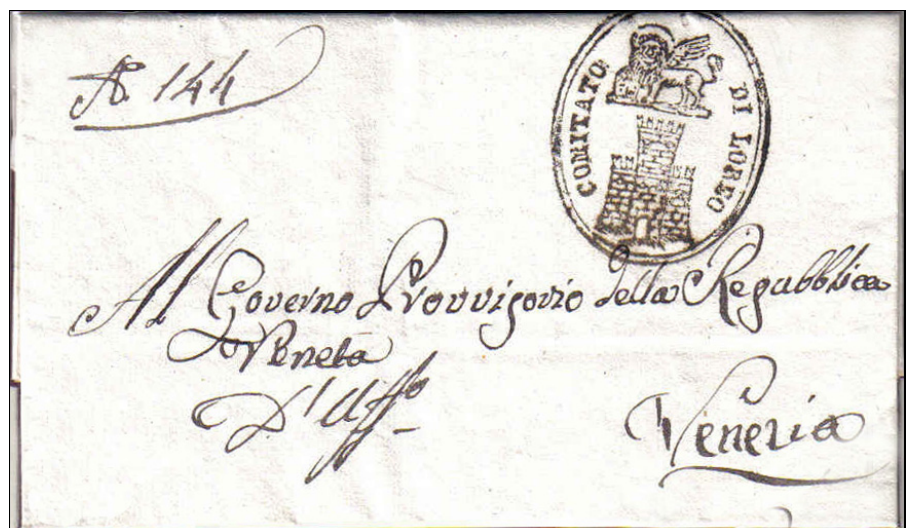 N. 144
COMITATO DI LOREO
Al Governo Provvisorio della Repubblica
Veneta
D'Uff.o
Venezia